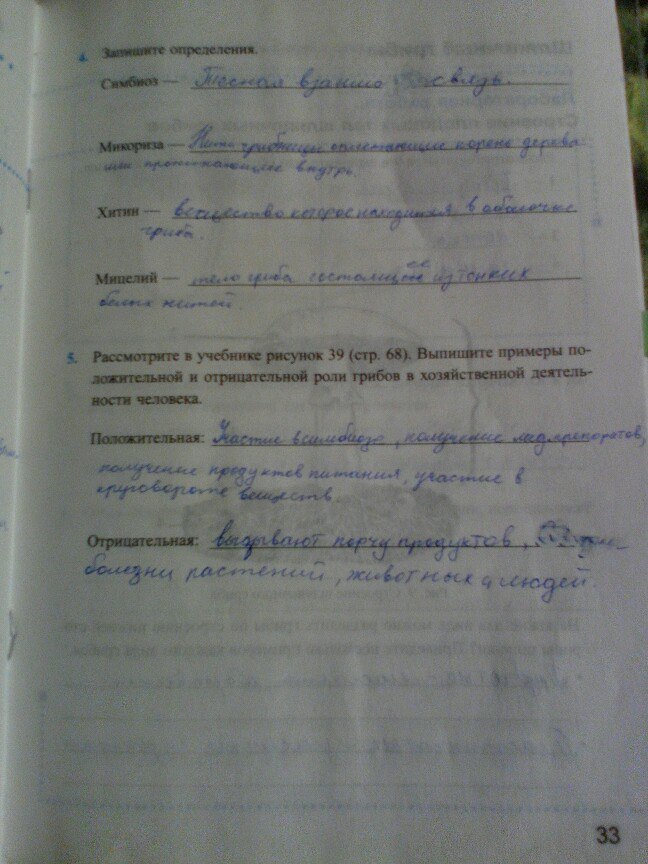 4. Запишите определения.
Симбиоз — Тесная взаимо связь.
Микориза — Нити грибницы оплетающие корень дерева
или проникающие внутрь.
Хитин — вещество которое находится в оболочке
гриба.
Мицелий — тело гриба состоящее из тонких
белых нитей.
5. Рассмотрите в учебнике рисунок 39 (стр. 68). Выпишите примеры по-
ложительной и отрицательной роли грибов в хозяйственной деятель-
ности человека.
Положительная: Участие в симбиозе, получение медпрепоратов,
получение продуктов питания, участие в
круговороте веществ
Отрицательная: вызывают порчу продуктов,
болезни растений, животных и людей.
33